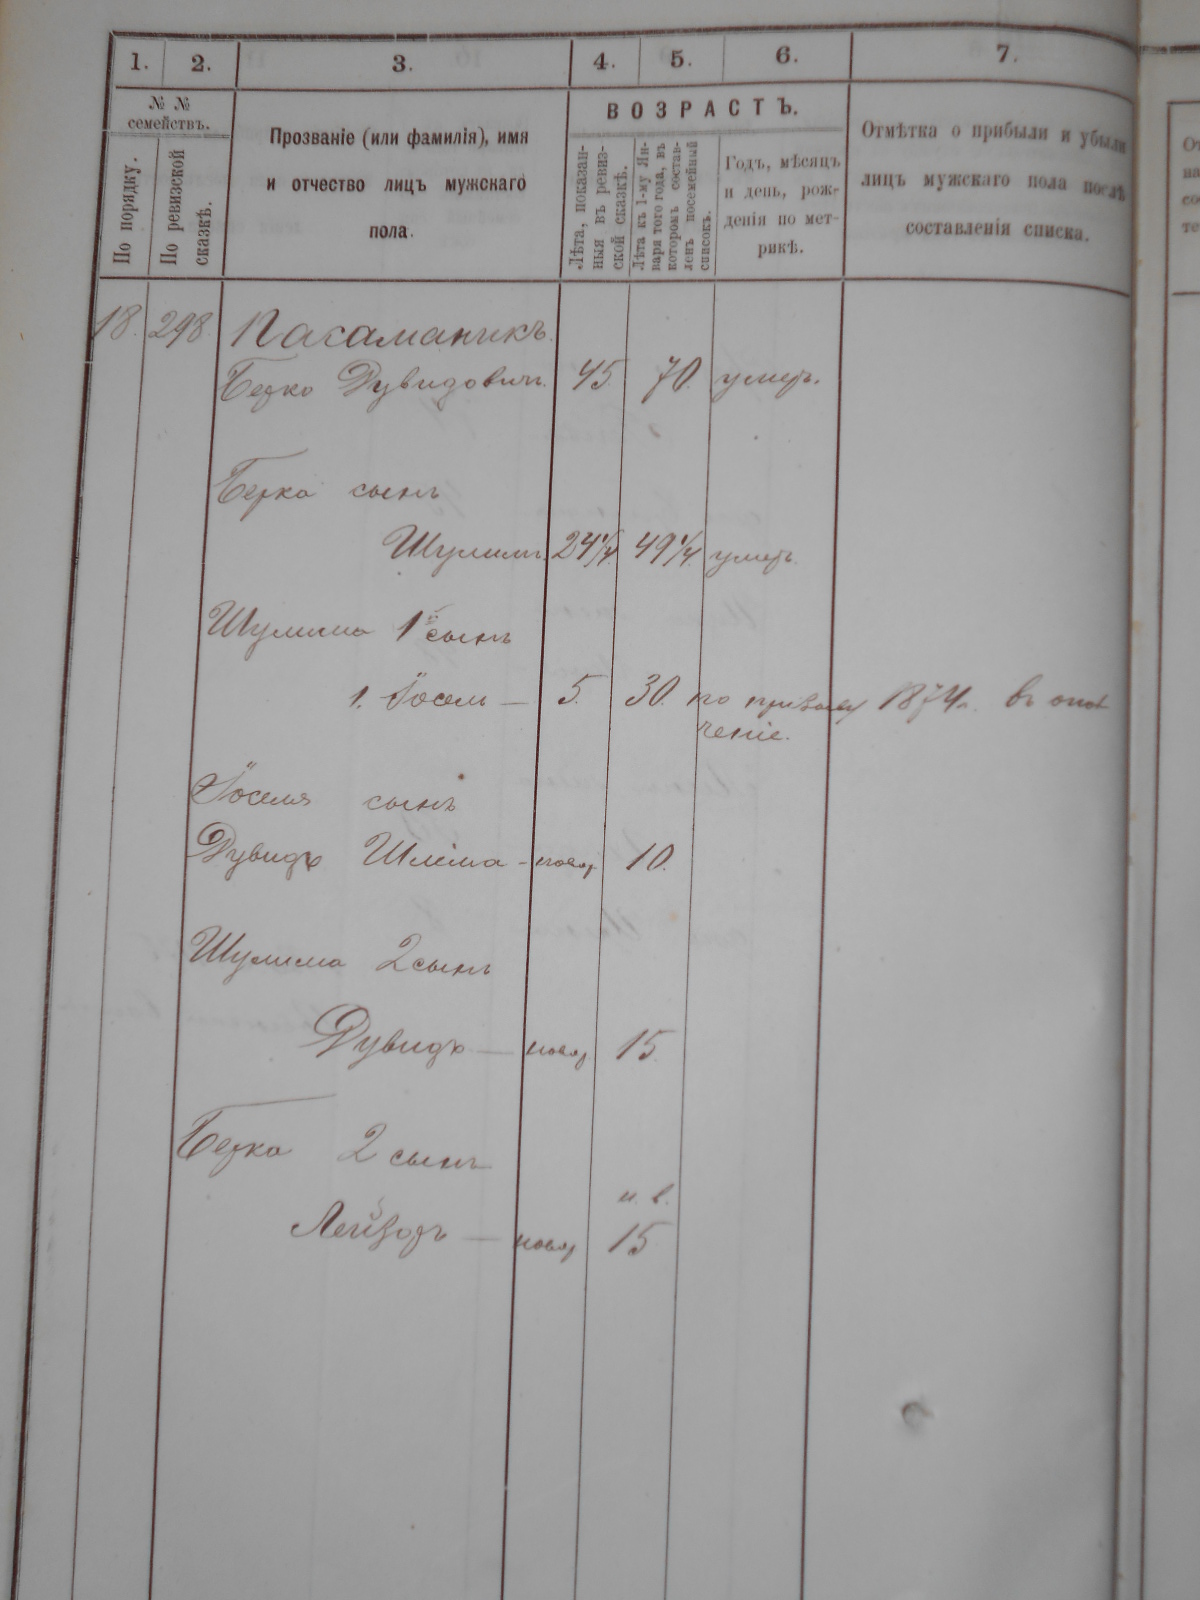 1. 2. 3. 4. 5. 6. 7.
№ №
семействъ.
По порядку.
По ревизской
сказкѣ.
Прозваніе (или фамилія), имя
и отчество лицъ мужскаго
пола.
ВОЗРАСТЪ.
Лѣта, показан-
ныя въ ревиз-
ской сказкѣ.
Лѣта къ 1-му Ян-
варя того года, въ
которомъ состав-
ленъ посемейный
списокъ.
Годъ, мѣсяцъ
и день, рож-
денія по мет-
рикѣ.
Отмѣтка о прибыли и убыли
лицъ мужскаго пола послѣ
составленія списка.
18. 298. Пасаманикъ.
Берко Дувидовичъ. 45. 70. умеръ.
Берка сынъ
Шулимъ 24 1/4. 49 1/4. умеръ.
Шулима 1й сынъ
1. Іосель — 5. 30. по призыву 1874г. въ опол
ченіе.
Іоселя сынъ
Дувидъ Шлема - новор 10.
Шулима 2 сынъ
Дувидъ — новор 15.
Берка 2 сынъ
н. в.
Лейзоръ — новор 15